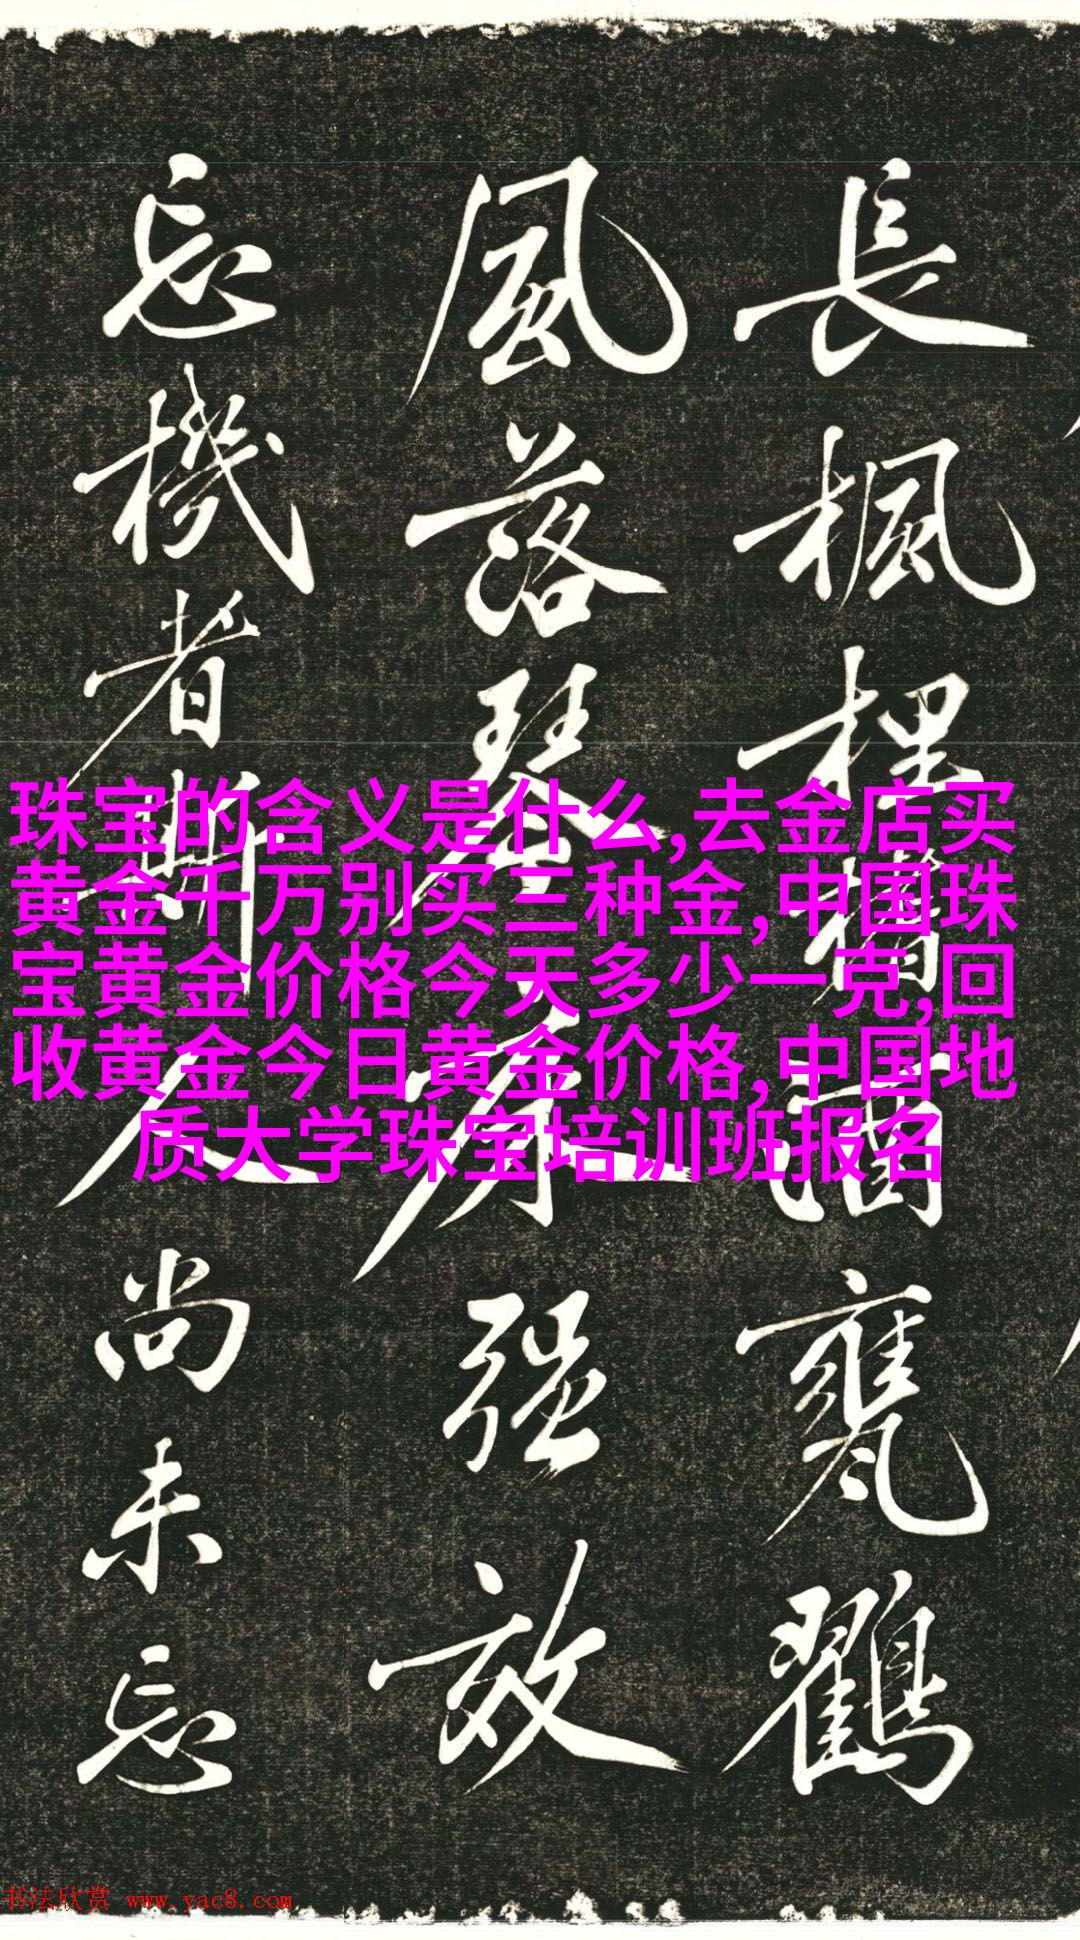 長楓柽橋酒甕鸛
風落琴房强效
忘機者斯人尚未忘
珠宝的含义是什么,去金店买
黄金千万别买三种金,中国珠
宝黄金价格今天多少一克,回
收黄金今日黄金价格,中国地
质大学珠宝培训班报名
书法欣赏 www.yac8.com